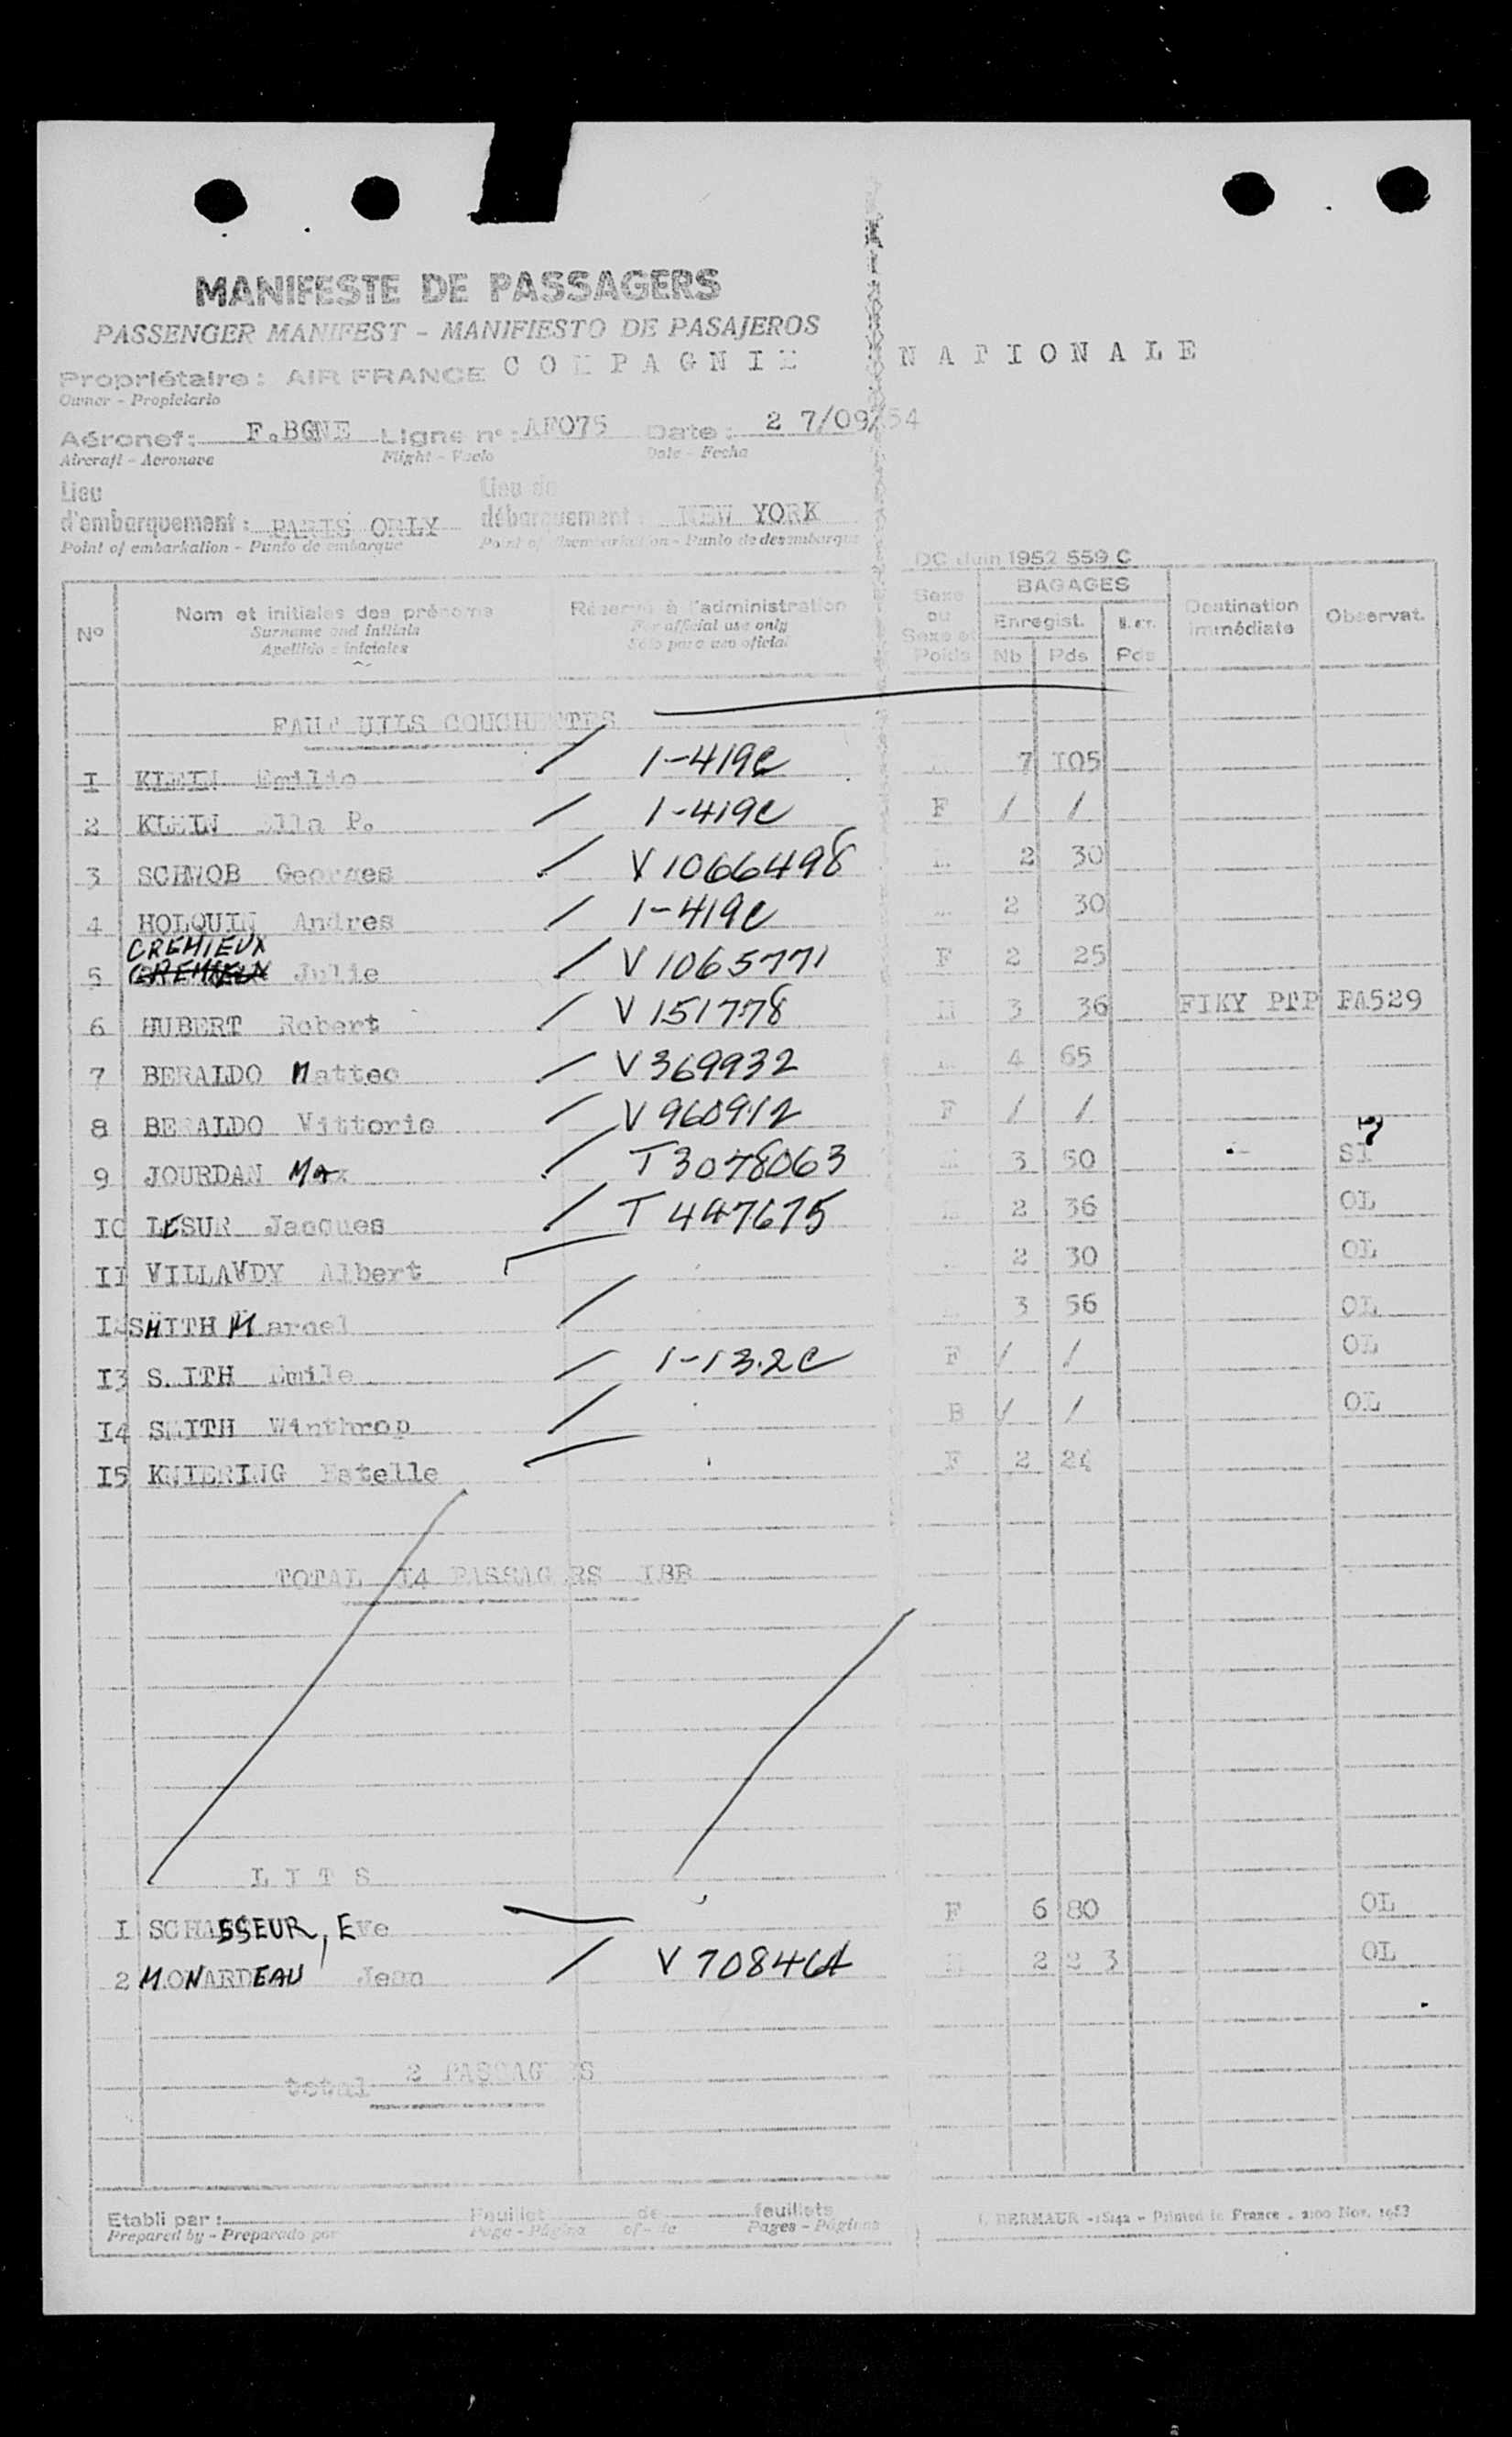 MANIFESTE DE PASSAGERS
PASSENGER MANIFEST - MANIFIESTO DE PASAJEROS
COMPAGNIE NATIONALE
Propriétaire : AIR FRANCE
Owner - Propietario
Aéronef : F.BGNE Ligne n° : AF075 Date : 2 7/09/54
Aircraft - Aeronave Flight - Vuelo Date - Fecha
Lieu d'embarquement : PARIS ORLY Lieu de débarquement : NEW YORK
Point of embarkation - Punto de embarque Point of disembarkation - Punto de desembarque
DC Juin 1952 559 C
N° Nom et initiales des prénoms Réservé à l'administration Sexe ou Sexe et Poids BAGAGES Destination immédiate Observat.
Surname and initials For official use only Enregist.
Apellido e iniciales Sólo para uso oficial Nb Pds Pds
FAUTEUILS COUCHETTES
I KLEIN Emilio / 1-419c 7 I05
2 KLEIN Ella P. / 1-419c F / /
3 SCHWOB Georges / V1066498 2 30
4 HOLQUIN Andres / 1-419c 2 30
CREMIEUX
5 Julie / V1065771 F 2 25
6 HUBERT Robert / V151778 H 3 36 FIKY PTP PA529
7 BERALDO Matteo / V369932 4 65
8 BERALDO Vittorie / V960912 F / /
9 JOURDAN Max / T3078063 3 50
I0 LESUR Jacques / T447675 2 36 OL
II VILLAVDY Albert 2 30 OL
I2 SMITH Marcel / 3 56 OL
I3 S.ITH Emile / 1-13.2c F / / OL
I4 SMITH Winthrop / B / / OL
I5 KNIERING Estelle F 2 24
TOTAL I4 PASSAGERS IBB
LITS
I SCHASSEUR, Eve F 6 80 OL
2 MONARDEAU Jean / V70846A H 2 2 3 OL
total 2 PASSAGERS
Etabli par : Feuillet de feuillets
Prepared by - Preparado por Page - Página of - de Pages - Páginas
Printed in France . 2100 Nov. 1953